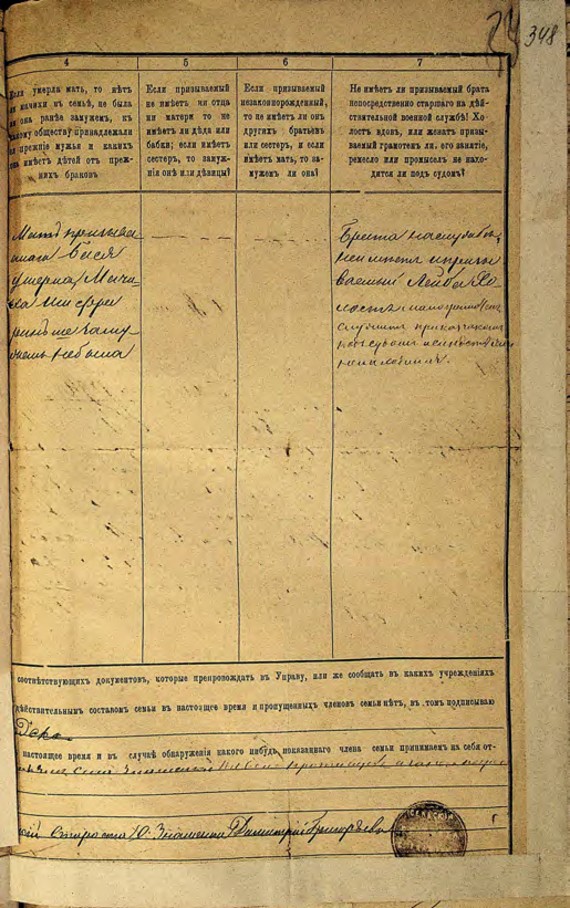 348
4
5
6
7
Если умерла мать, то нѣтъ
ли мачихи въ семьѣ, не была
ли она ранѣе замужемъ, къ
какому обществу принадлежали
ея прежніе мужья и какихъ
она имѣетъ дѣтей отъ преж-
нихъ браковъ
Если призываемый
не имѣетъ ни отца
ни матери то не
имѣетъ ли дѣда или
бабки; если имѣетъ
сестеръ, то замуж-
нія онѣ или дѣвицы?
Если призываемый
незаконнорожденный,
то не имѣетъ ли онъ
другихъ братьевъ
или сестеръ, и если
имѣетъ мать, то за-
мужемъ ли она?
Не имѣетъ ли призываемый брата
непосредственно старшаго на дѣй-
ствительной военной службѣ! Хо-
лостъ вдовъ, или женатъ призы-
ваемый грамотенъ ли, его занятіе,
ремесло или промыселъ не нахо-
дится ли подъ судомъ?
Мать призывае
маго Бася
умерла, Мачи
ха
замy
жемъ небыла
Брата на службѣ,
неимѣетъ призы
ваемый Лейба Хо
лостъ малограмотенъ
служитъ приказчикомъ
подъ судомъ
соотвѣтствующихъ документовъ, которые препровождать въ Управу, или же сообщать въ какихъ учрежденіяхъ
дѣйствительнымъ составомъ семьи въ настоящее время и пропущенныхъ членовъ семьи нѣтъ, въ томъ подписываю
настоящее время и въ случаѣ обнаруженія какого нибудь показаннаго члена семьи принимаемъ на себя от-
Староста Ю. Знаменка Димитрій Григорьевъ